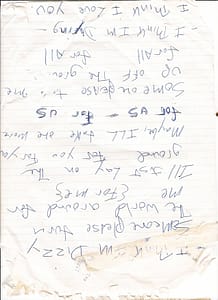 - I Think I'm Dizzy
Someone please turn
The World around for
me {For me}
I'll Just Lay on The
ground for you for ya
Maybe I'LL take one more
for us - for us
Someone please me
up off The
for All for All
- I Think I'm Dying -
I Think I Love you.